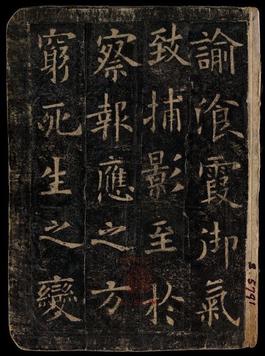 諭飡霞御氣
致捕影至於
察報應之方
窮死生之變
S.5791